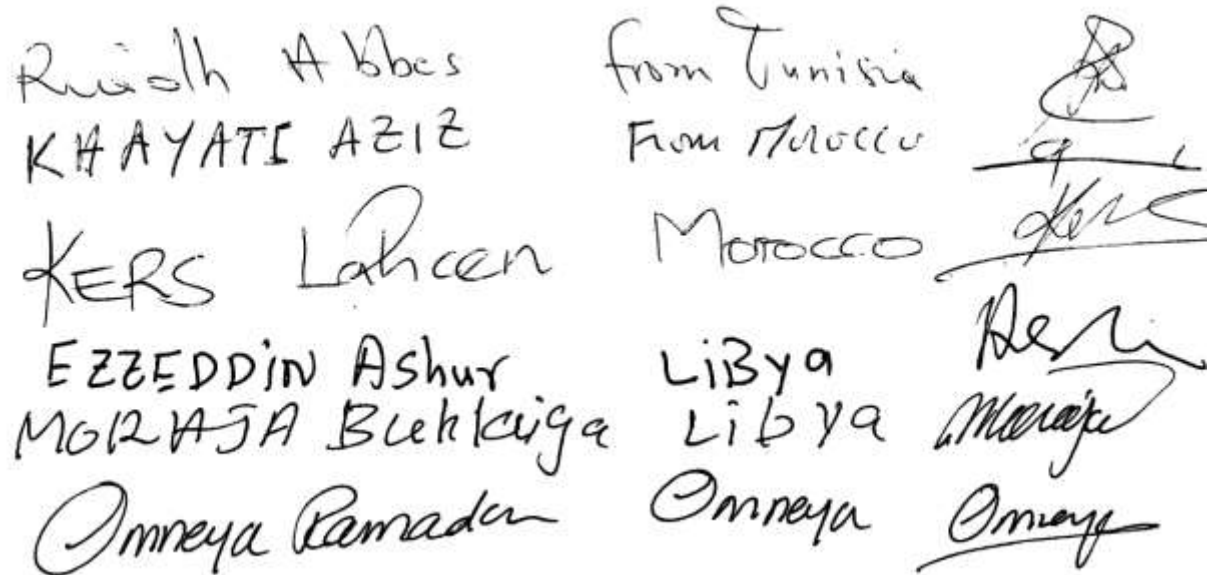 Riadh Abbes from Tunisia
KHAYATI AZIZ From Morocco
KERS Lahcen Morocco Kers
EZZEDDiN Ashur LiBya
MORHAJA Libya
Omneya Ramadan Omneya Omneya